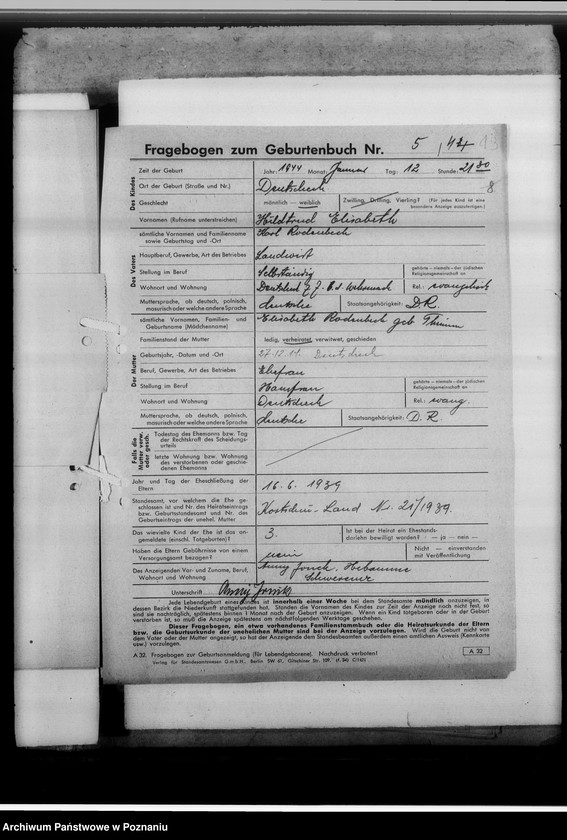 Fragebogen zum Geburtenbuch Nr. 5 / 44
Des Kindes
Zeit der Geburt Jahr: 1944 Monat: Januar Tag: 12 Stunde: 21 30
Ort der Geburt (Straße und Nr.) 8
Geschlecht männlich — weiblich Zwilling, Drilling, Vierling? (Für jedes Kind ist eine besondere Anzeige auszufertigen.)
Vornamen (Rufname unterstreichen) Hildtrud Elisabeth
Des Vaters
sämtliche Vornamen und Familienname sowie Geburtstag und -Ort Karl Rodenbeck
Hauptberuf, Gewerbe, Art des Betriebes Landwirt
Stellung im Beruf Selbständig gehörte - niemals - der jüdischen Religionsgemeinschaft an
Wohnort und Wohnung z. Z. b. d. Wehrmacht Rel.: evangelisch
Muttersprache, ob deutsch, polnisch, masurisch oder welche andere Sprache deutsche Staatsangehörigkeit: D.R.
Der Mutter
sämtliche Vornamen, Familien- und Geburtsname (Mädchenname) Elisabeth Rodenbeck geb
Familienstand der Mutter ledig, verheiratet, verwitwet, geschieden
Geburtsjahr, -Datum und -Ort 27.12.11.
Beruf, Gewerbe, Art des Betriebes Ehefrau
Stellung im Beruf Hausfrau gehörte - niemals - der jüdischen Religionsgemeinschaft an
Wohnort und Wohnung Rel.: evang.
Muttersprache, ob deutsch, polnisch, masurisch oder welche andere Sprache deutsche Staatsangehörigkeit: D.R.
Falls die Mutter verw. oder gesch.
Todestag des Ehemanns bzw. Tag der Rechtskraft des Scheidungsurteils
letzte Wohnung bzw. Wohnung des verstorbenen oder geschiedenen Ehemanns
Jahr und Tag der Eheschließung der Eltern 16.6.1939
Standesamt, vor welchem die Ehe geschlossen ist und Nr. des Heiratseintrags bzw. Geburtsstandesamt und Nr. des Geburtseintrags der unehel. Mutter Land Nr. 21/1939.
Das wievielte Kind der Ehe ist das angemeldete (einschl. Totgeburten)? 3. Ist bei der Heirat ein Ehestandsdarlehn bewilligt worden? — ja — nein —
Haben die Eltern Gebührnisse von einem Versorgungsamt bezogen? nein Nicht — einverstanden mit Veröffentlichung
Des Anzeigenden Vor- und Zuname, Beruf, Wohnort und Wohnung Hebamme
Schwersenz
Unterschrift
Jede Lebendgeburt eines Kindes ist innerhalb einer Woche bei dem Standesamt mündlich anzuzeigen, in
dessen Bezirk die Niederkunft stattgefunden hat. Standen die Vornamen des Kindes zur Zeit der Anzeige noch nicht fest, so
sind sie nachträglich, spätestens binnen 1 Monat nach der Geburt anzuzeigen. Wenn ein Kind totgeboren oder in der Geburt
verstorben ist, so muß die Anzeige spätestens am nächstfolgenden Werktage geschehen.
Dieser Fragebogen, ein etwa vorhandenes Familienstammbuch oder die Heiratsurkunde der Eltern
bzw. die Geburtsurkunde der unehelichen Mutter sind bei der Anzeige vorzulegen. Wird die Geburt nicht von
dem Vater oder der Mutter angezeigt, so hat der Anzeigende dem Standesbeamten außerdem einen amtlichen Ausweis (Kennkarte
usw.) vorzulegen.
A 32. Fragebogen zur Geburtsanmeldung (für Lebendgeborene). Nachdruck verboten! A 32
Verlag für Standesamtswesen G.m.b.H., Berlin SW 61, Gitschiner Str. 109.
Archiwum Państwowe w Poznaniu